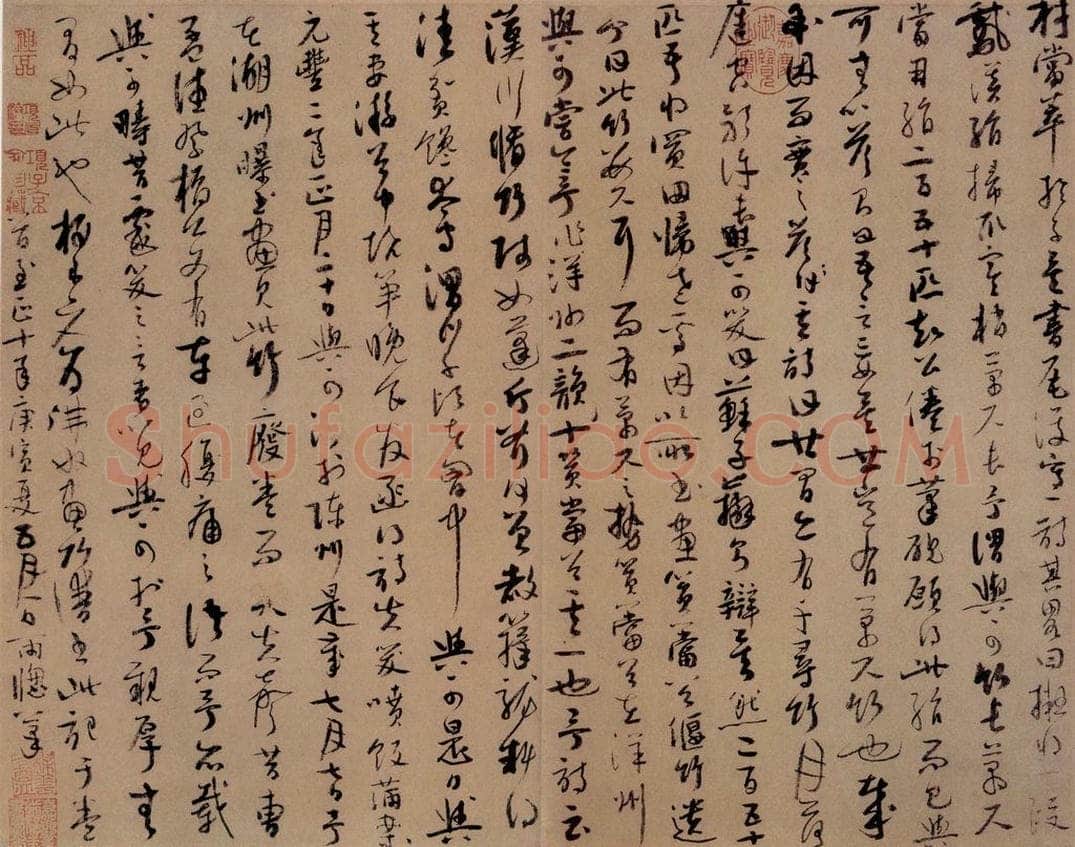 材當萃於子矣書尾復寫一詩其略曰擬將一段
鵝溪絹掃取寒梢萬尺長予謂與可竹長萬尺
當用絹二百五十匹知公倦於筆硯願得此絹而已與
可無以答則曰吾言妄矣世豈有萬尺竹也哉
余因而實之答其詩曰世間亦有千尋竹月落
庭空影許長與可笑曰蘇子辯則辯矣然二百五十
匹吾將買田歸老焉因以所畫篔簹谷偃竹遺
予曰此竹數尺耳而有萬尺之勢篔簹谷在洋州
與可嘗令予作洋州二韻十篔簹谷其一也予詩云
漢川脩竹賤如蓬斤斧何曾赦籜龍料得
清貧饞太守渭川千畝在胸中 與可是日與
其妻游谷中燒筍晚食發函得詩失笑噴飯滿案
元豐二年正月二十日與可沒於陳州是歲七月七日予
在湖州曝書畫見此竹廢卷而哭失聲昔曹
孟德祭橋公文有車過腹痛之語而予亦載
與可疇昔戲笑之言者以見與可於予親厚無
間如此也梅道人為佛奴畫竹譜書此記于卷
首至正十年庚寅夏五月一日雨窗筆
Shufaziliao.COM